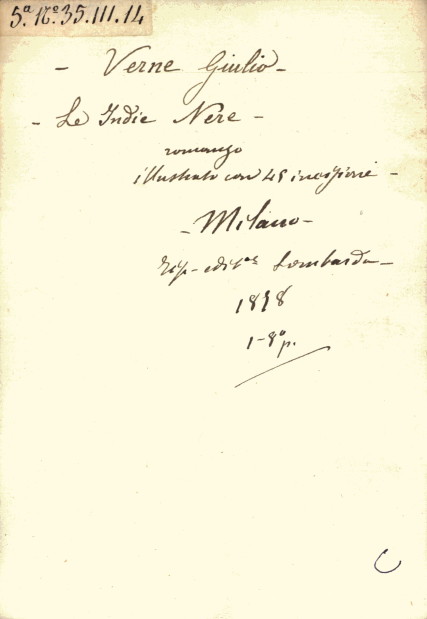 5.ª N.º 35.III.14
- Verne Giulio -
- Le Indie Nere -
romanzo
illustrato con 45 incisioni -
- Milano -
Tip- edit.ce Lombarda -
1878
1-8º p.
C